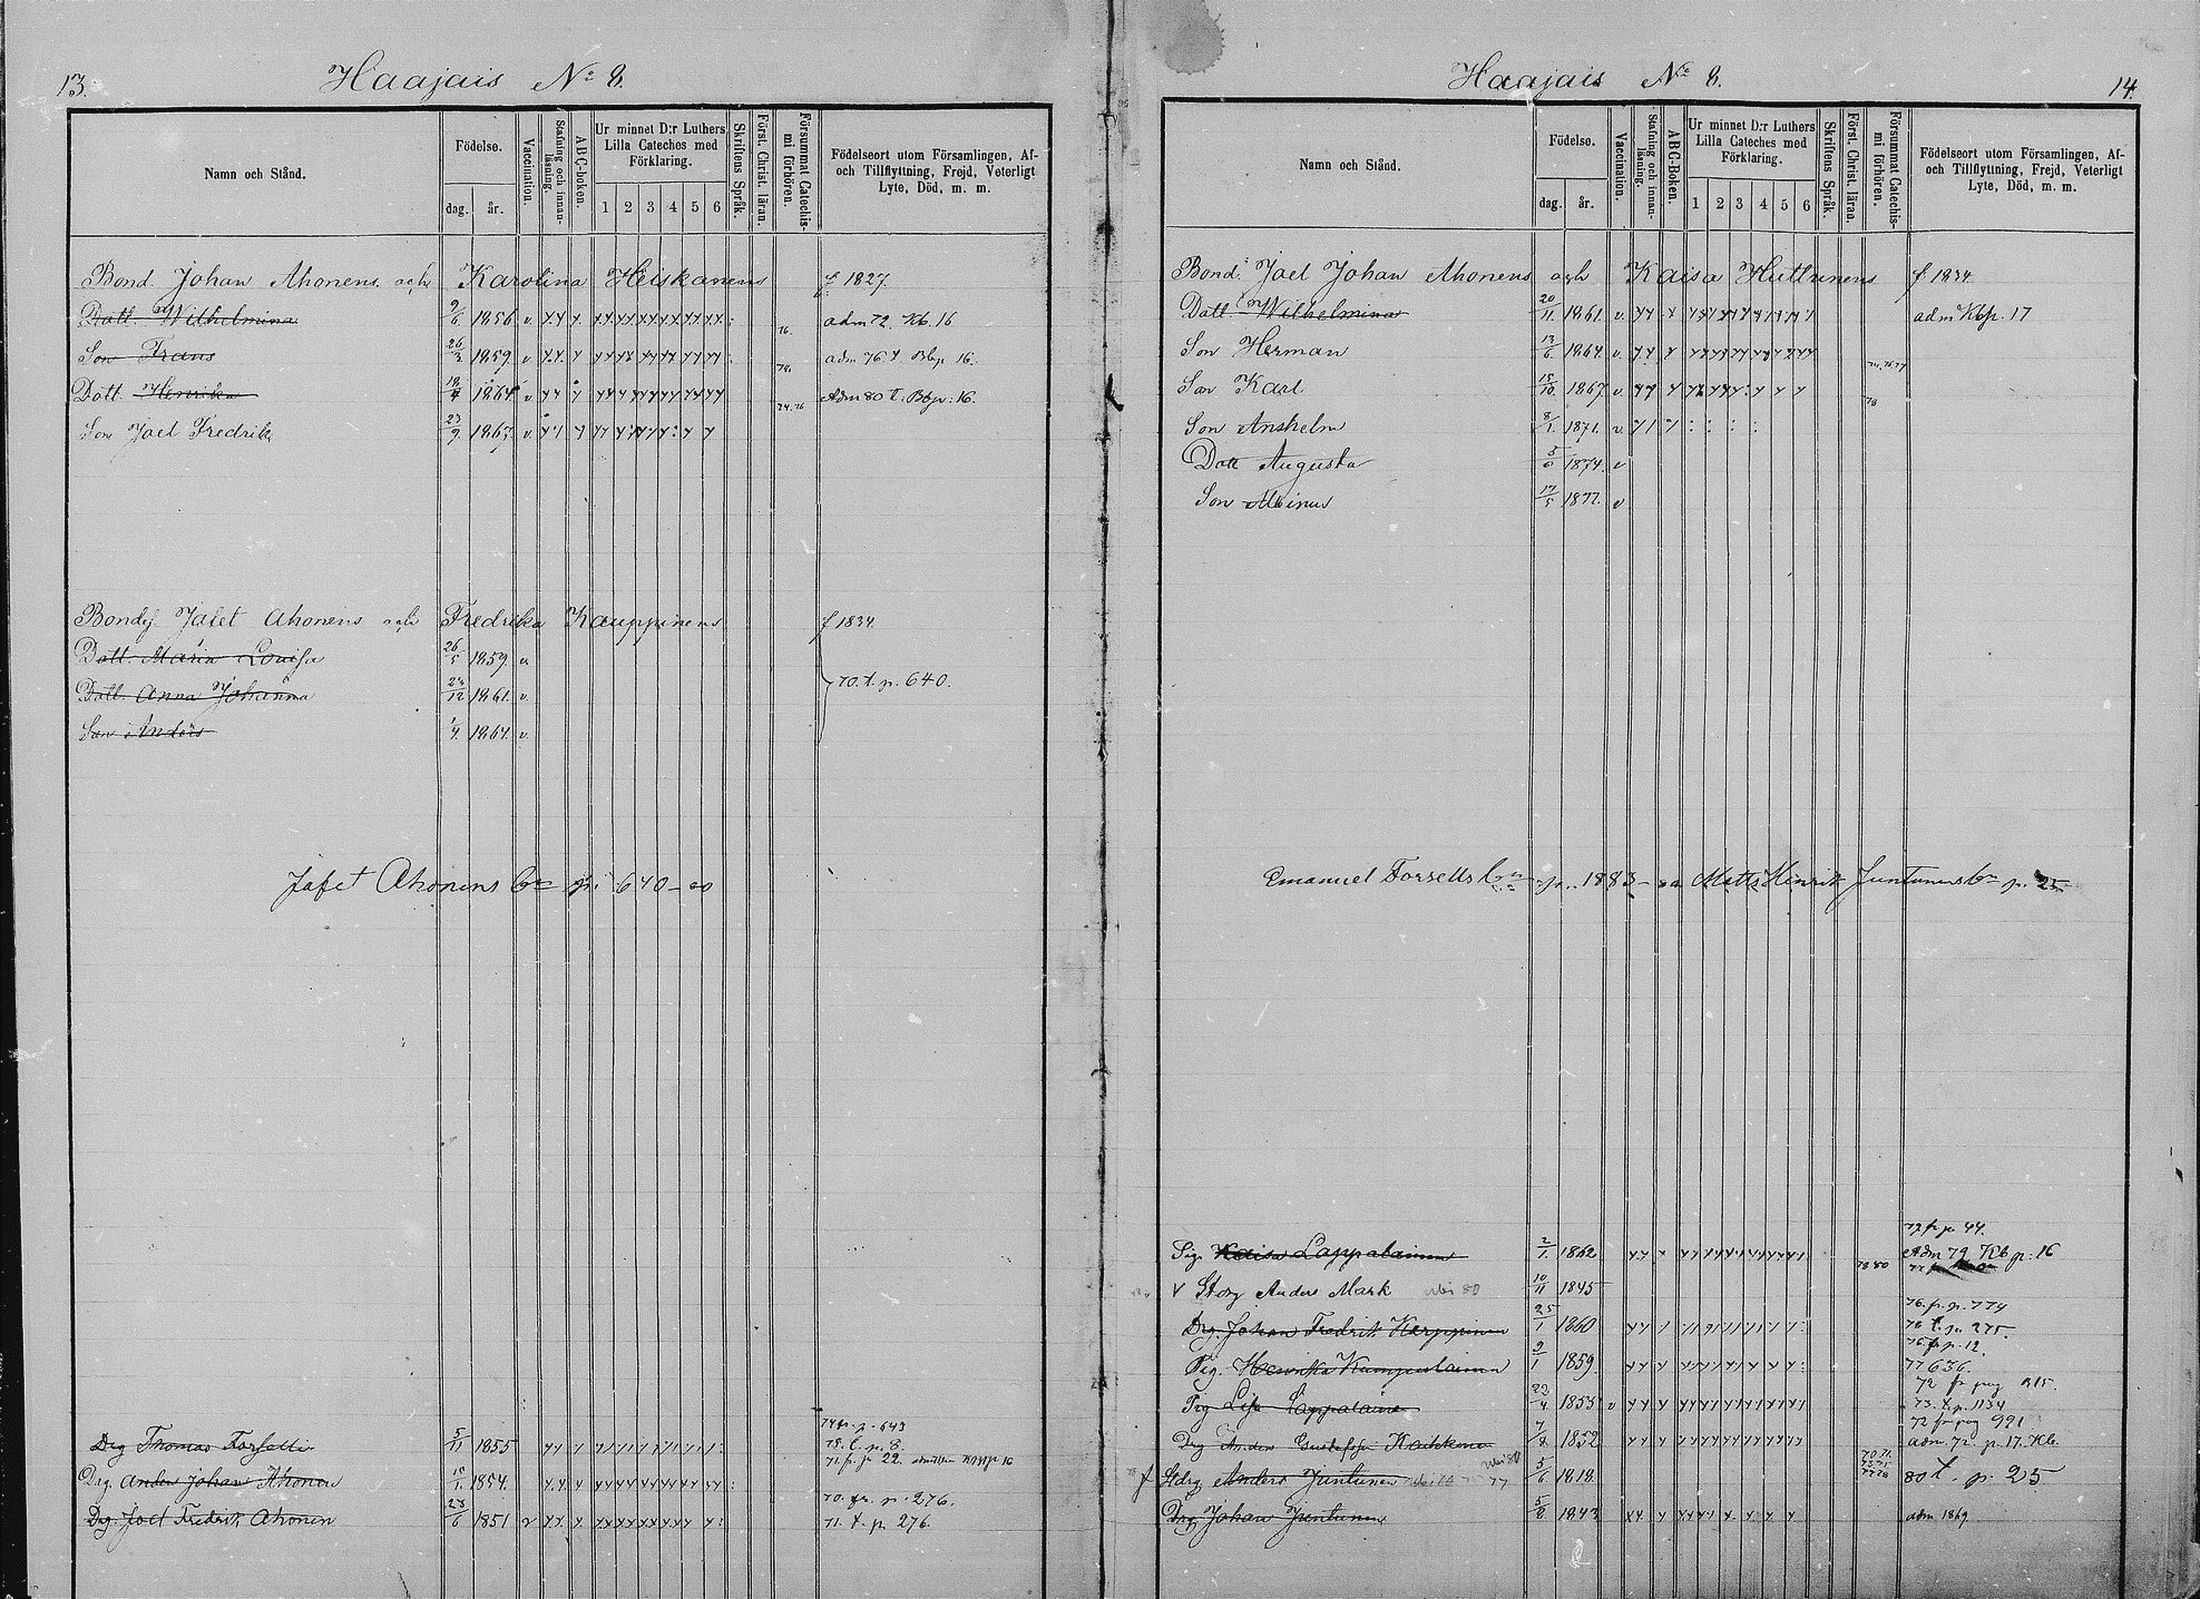 13.
Haajais No 8.
Namn och Stånd.
Födelse.
dag.
år.
Vaccination.
Stafning och innanläsning.
ABC-boken.
Ur minnet D:r Luthers
Lilla Cateches med
Förklaring.
1 2 3 4 5 6
Skriftens Språk.
Först. Christ. läran.
Försummat Catechismi förhören.
Födelseort utom Församlingen, Af-
och Tillflyttning, Frejd, Veterligt
Lyte, Död, m. m.
Bond. Johan Ahonens och Karolina Heiskanens f 1827.
Dott. Wilhelmina 1856 v. adm 72. Kb. 16
Son Frans 26/3 1859 v. 76. adm 76 t. Bbp 16.
Dott. Henrika 1864 v. 78. Adm 80 t. Bbp: 16.
Son Joel Fredrik 23/9 1867. v. 74.76
Bondes. Jafet Ahonens och Fredrika Kauppinens f 1834.
Dott. Maria Lovisa 26/5 1859. v.
Dott. Anna Johanna 1861. v. 70. t. p. 640.
Son Anders 1864. v.
Jafet Ahonens bn p. 640
74 fr. p. 643
Drg Thomas Forsell 5/11 1855 75. t. p. 8.
71. fr. p. 22.
Drg. Anders Johan Ahonen 15/1 1854.
70. fr. p. 276.
Drg. Joel Fredrik Ahonen 1851 v 71. t. p. 276.
14.
Haajais No 8.
Namn och Stånd.
Födelse.
dag.
år.
Vaccination.
Stafning och innanläsning.
ABC-Boken.
Ur minnet D:r Luthers
Lilla Cateches med
Förklaring.
1 2 3 4 5 6
Skriftens Språk.
Först. Christ. läran.
Försummat Catechismi förhören.
Födelseort utom Församlingen, Af-
och Tillflyttning, Frejd, Veterligt
Lyte, Död, m. m.
Bond. Joel Johan Ahonens och Kaisa Huttunens f 1834.
Dott Wilhelmina 20/11 1861. v. adm Kbp. 17
Son Herman 13/6 1864. v.
Son Karl 15/10 1867. v. 78
Son Anshelm 8/1 1871. v.
Dott Augusta 5/6 1874. v
Son Albinus 17/5 1877. v
Emanuel Forsells bn p. 1883 Matts Henrik Juntunens bn p. 25
79 fr p. 44.
Pig. Kaisa Lappalainen 2/1 1862 Adm 79 Kb p: 16
78 80
v Storg Anders Mark 10/11 1845
76. fr. p. 774
Drg. Johan Fredrik Karppinen 25/1 1860 78 t. p. 275.
76 fr p. 12.
Pig. Henrika Kumpulainen 9/1 1859. 77 636.
72 fr pag 815.
Pig Lisa Lappalainen 22/4 1855 v 73. t. p. 1134
72 fr pag 991
Drg Anders Gustaf Kaikkonen 7/8 1852 adm. 72. p. 17. Kb.
f Stdrg Anders Juntunen 77 5/6 1818. 80 t. p. 25
Drg Johan Juntunen 5/8 1843 adm 1869